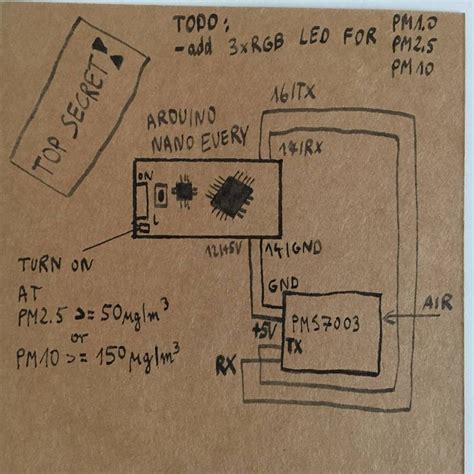 TODO:
-add 3xRGB LED FOR
PM1.0
PM2.5
PM10
TOP SECRET
ARDUINO
NANO EVERY
16/TX
17/RX
ON
L
12/+5V
14/GND
TURN ON
AT
PM2.5 >= 50µg/m³
or
PM10 >= 150µg/m³
GND
+5V
TX
RX
PMS7003
AIR